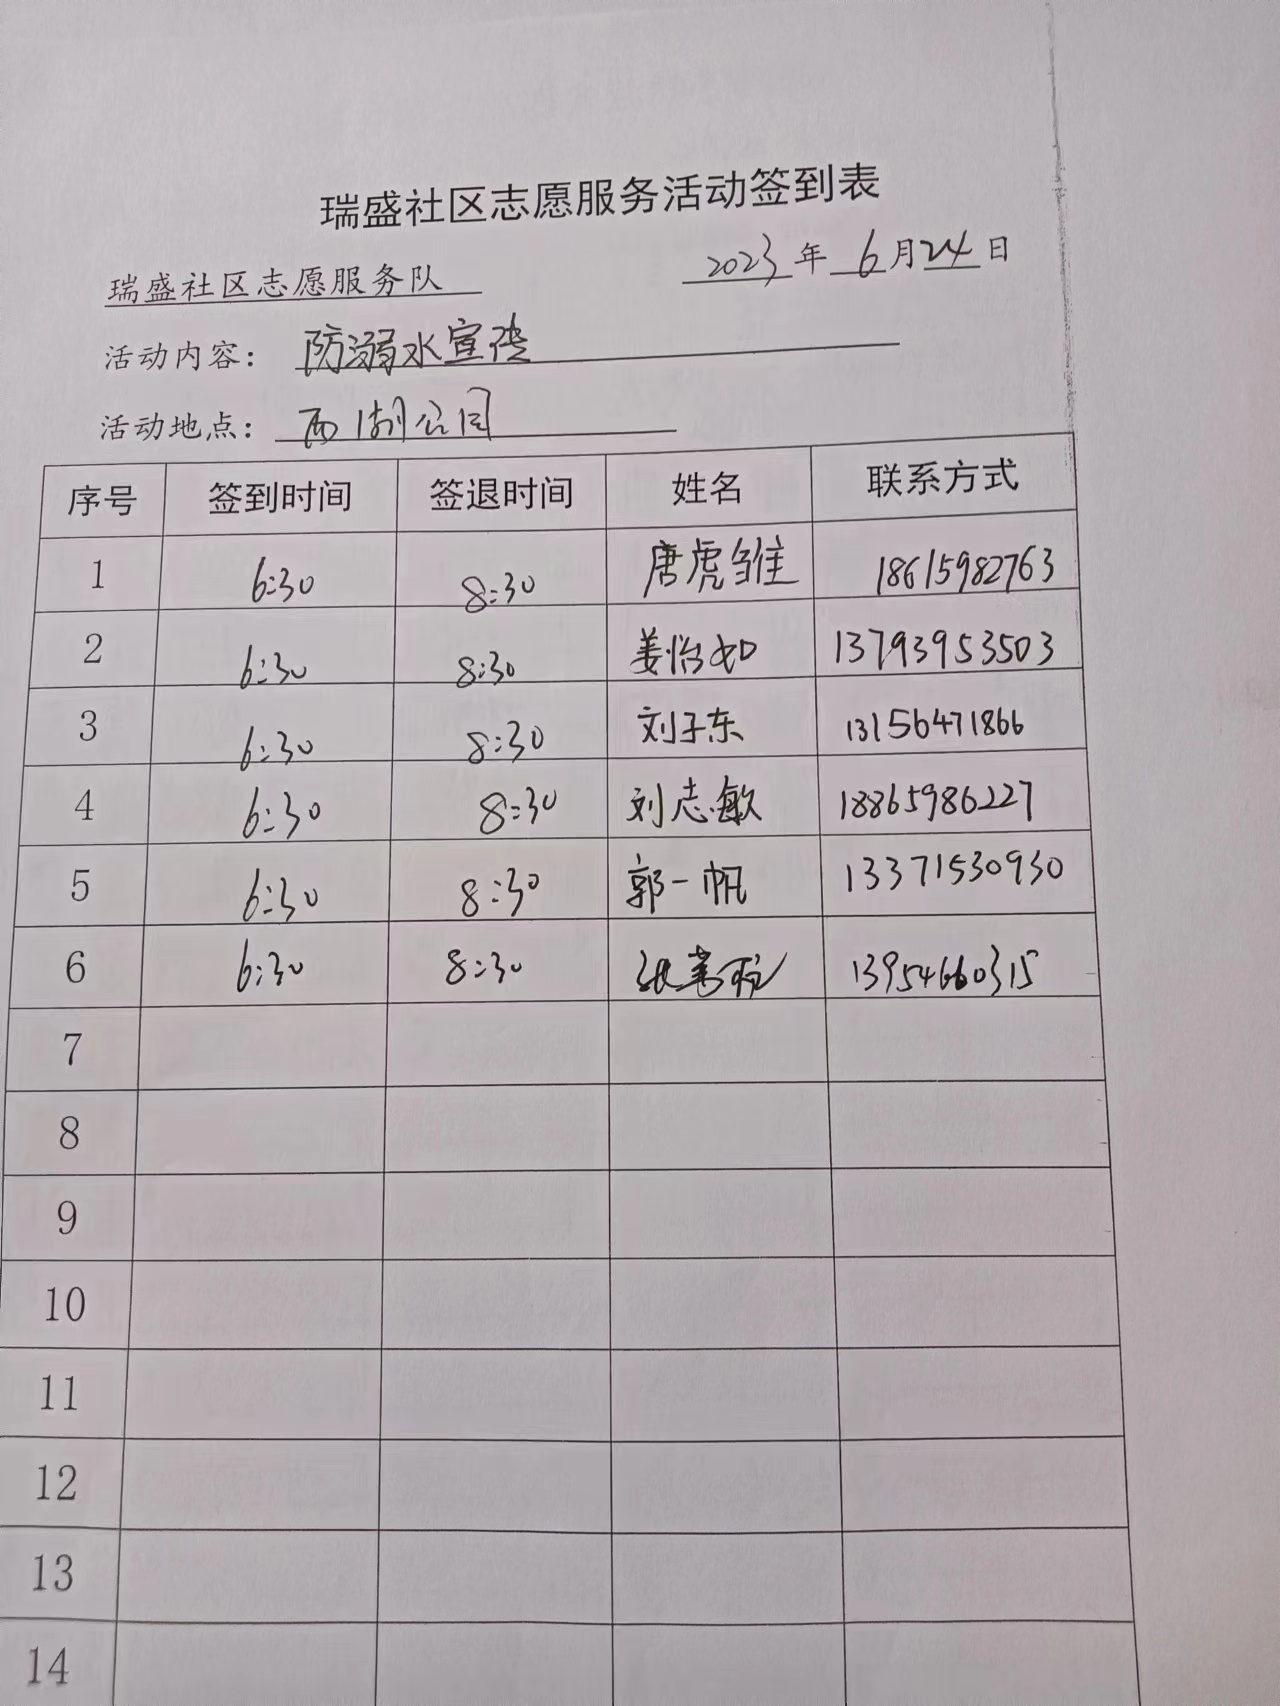 瑞盛社区志愿服务活动签到表
瑞盛社区志愿服务队 2023年6月24日
活动内容：防溺水宣传
活动地点：西湖公园
序号 签到时间 签退时间 姓名 联系方式
1 6:30 8:30 唐虎雏 18615982763
2 6:30 8:30 姜怡如 13793953503
3 6:30 8:30 刘子东 13156471866
4 6:30 8:30 刘志敏 18865986227
5 6:30 8:30 郭一帆 13371530930
6 6:30 8:30 13954660315
7
8
9
10
11
12
13
14